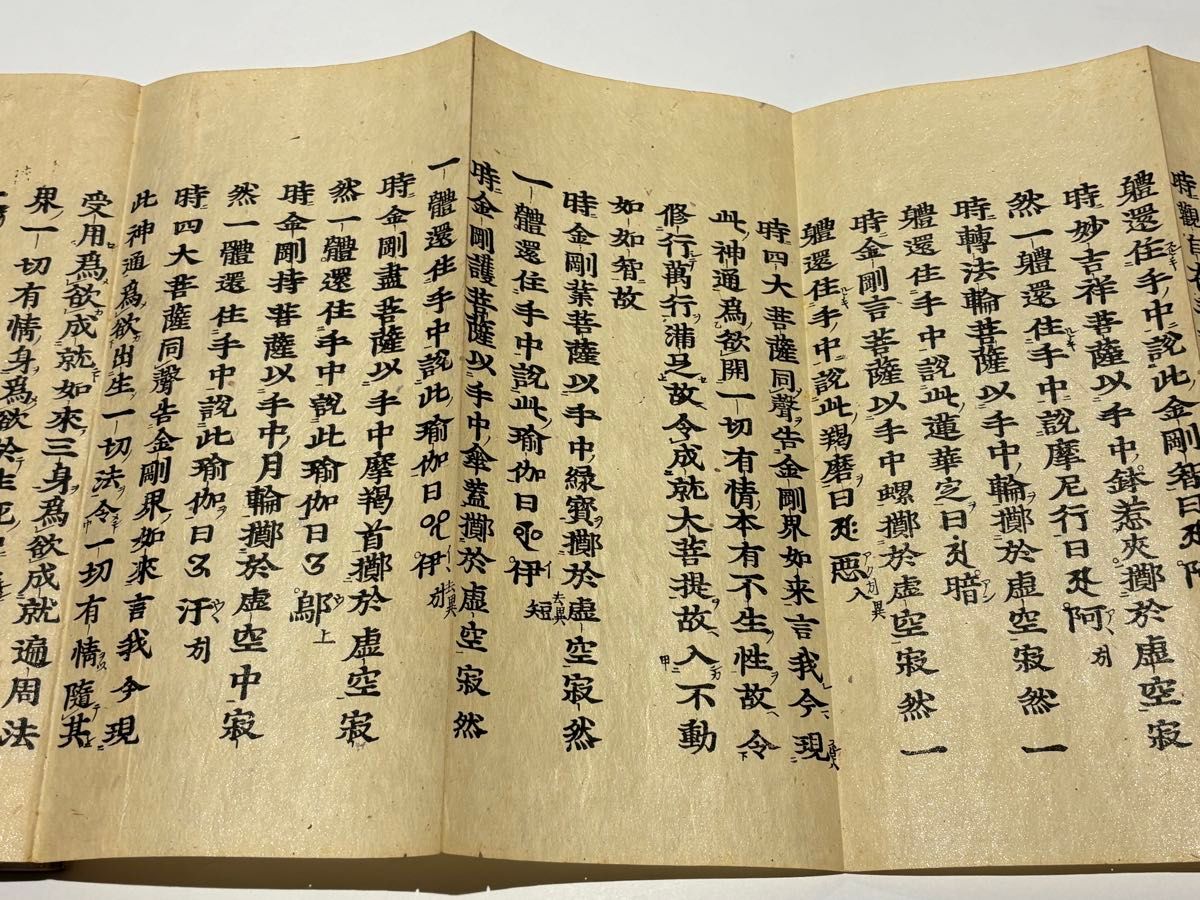 時
軆還住手中說此金剛智曰
時妙吉祥菩薩以手中鉢惹夾擲於虛空寂
然一軆還住手中說摩尼行曰 阿 引
時轉法輪菩薩以手中輪擲於虛空寂然一
軆還住手中說此蓮華定曰 暗
時金剛言菩薩以手中螺擲於虛空寂然一
軆還住手中說此羯磨曰 惡 入 引
時四大菩薩同聲告金剛界如来言我今現
此神通為欲開一切有情本有不生性故令
修行萬行滿足故令成就大菩提故入不動
如如智故
時金剛業菩薩以手中緑寶擲於虛空寂然
一體還住手中說此瑜伽曰 伊 短
時金剛護菩薩以手中傘蓋擲於虛空寂然
一體還住手中說此瑜伽曰 伊 引
時金剛盡菩薩以手中摩羯首擲於虛空寂
然一體還住手中說此瑜伽曰 鄔 上
時金剛持菩薩以手中月輪擲於虛空中寂
然一體還住手中說此瑜伽曰 汙 引
時四大菩薩同聲告金剛界如來言我今現
此神通為欲出生一切法令一切有情隨其
受用為欲成就如來三身為欲成就遍周法
界一切有情身為欲於生死